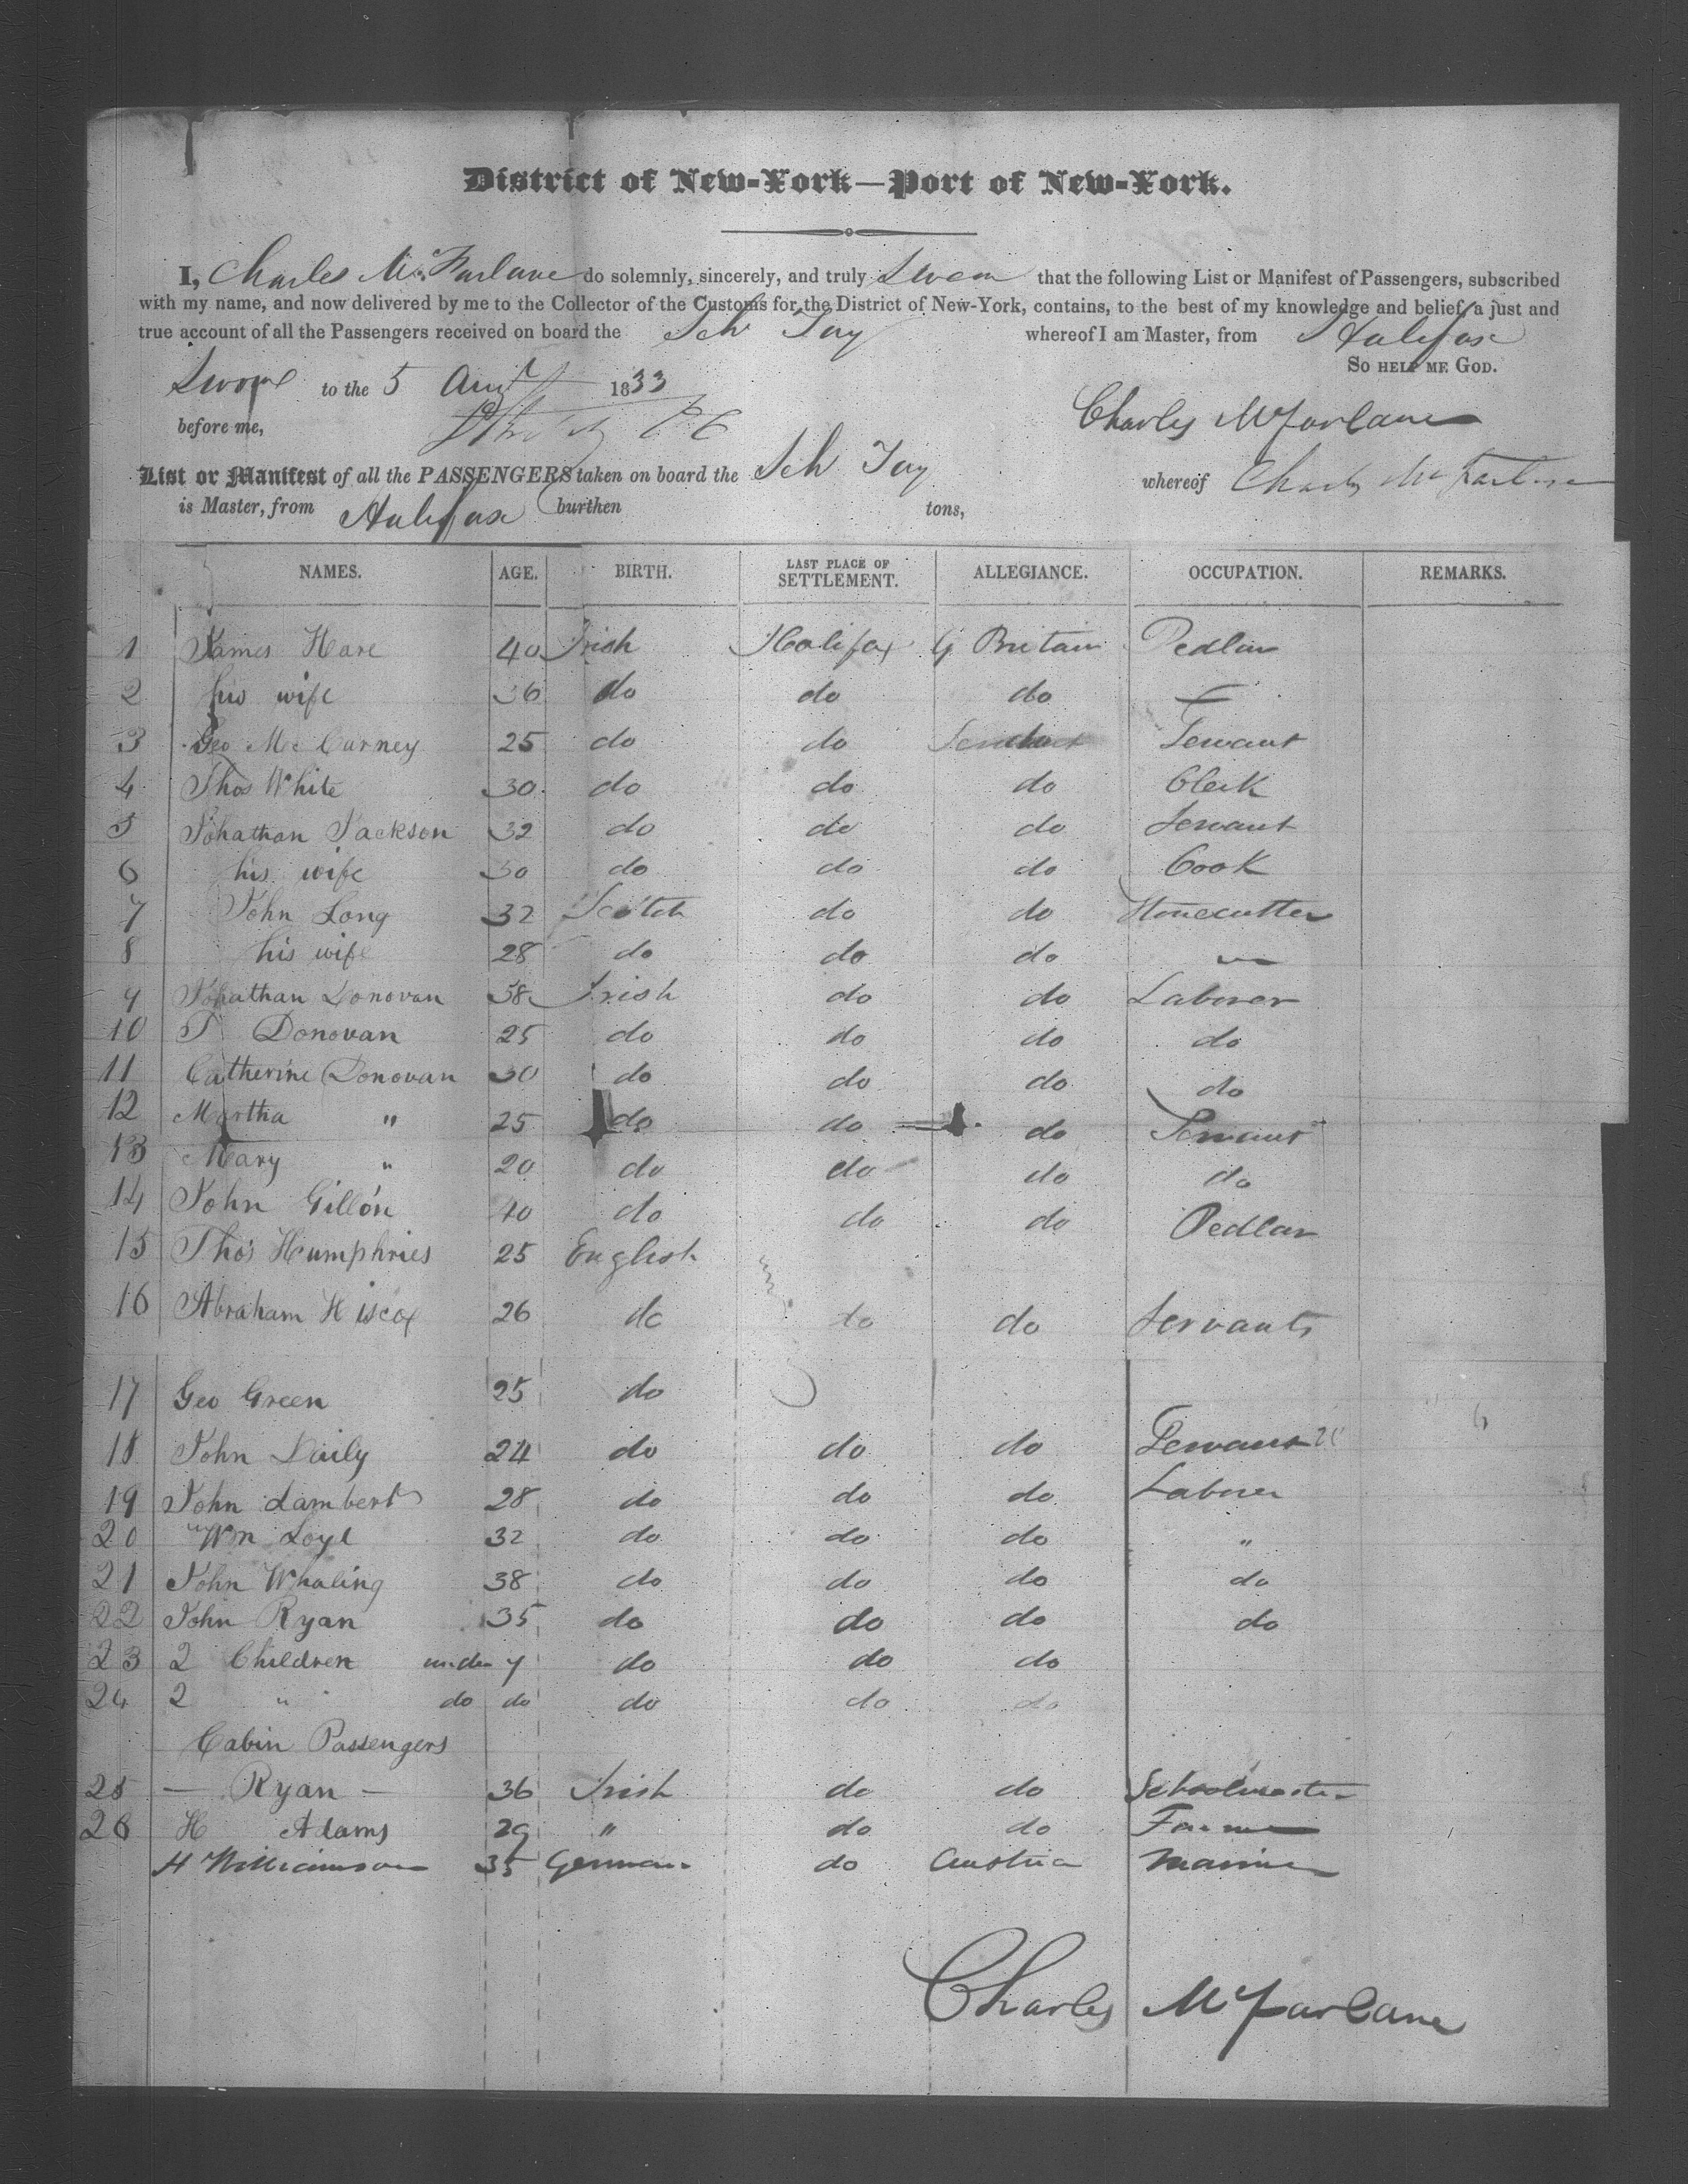 District of New-York—Port of New-York.
I, Charles McFarlane do solemnly, sincerely, and truly Swear that the following List or Manifest of Passengers, subscribed
with my name, and now delivered by me to the Collector of the Customs for the District of New-York, contains, to the best of my knowledge and belief, a just and
true account of all the Passengers received on board the Sch Jay whereof I am Master, from Halifax
So help me God.
Sworn to the 5 Augt 1833
before me,
Charles McFarlane
List or Manifest of all the PASSENGERS taken on board the Sch Jay whereof Charles McFarlane
is Master, from Halifax burthen tons,
NAMES. AGE. BIRTH. LAST PLACE OF SETTLEMENT. ALLEGIANCE. OCCUPATION. REMARKS.
1 James Hare 40 Irish Halifax G Britain Pedlar
2 his wife 36 do do do —
3 Geo McCarney 25 do do Servant
4 Thos White 30 do do do Clerk
5 Johathan Jackson 32 do do do Servant
6 his wife 30 do do do Cook
7 John Long 32 Scotch do do Stonecutter
8 his wife 28 do do do —
9 Johathan Donovan 38 Irish do do Laborer
10 T Donovan 25 do do do do
11 Catherine Donovan 30 do do do do
12 Martha " 25 do do do Servant
13 Mary " 20 do do do do
14 John Gillon 40 do do do Pedlar
15 Thos Humphries 25 English
16 Abraham Hiscox 26 do do do Servants
17 Geo Green 25 do
18 John Daily 24 do do do Servant
19 John Lambert 28 do do do Laborer
20 Wm Loyd 32 do do do "
21 John Whaling 38 do do do do
22 John Ryan 35 do do do do
23 2 Children under 7 do do do
24 2 " do do do do do
Cabin Passengers
25 — Ryan — 36 Irish do do Schoolmaster
26 H Adams 29 " do do Farmer
H Williamson 35 German do Austria Mariner
Charles McFarlane